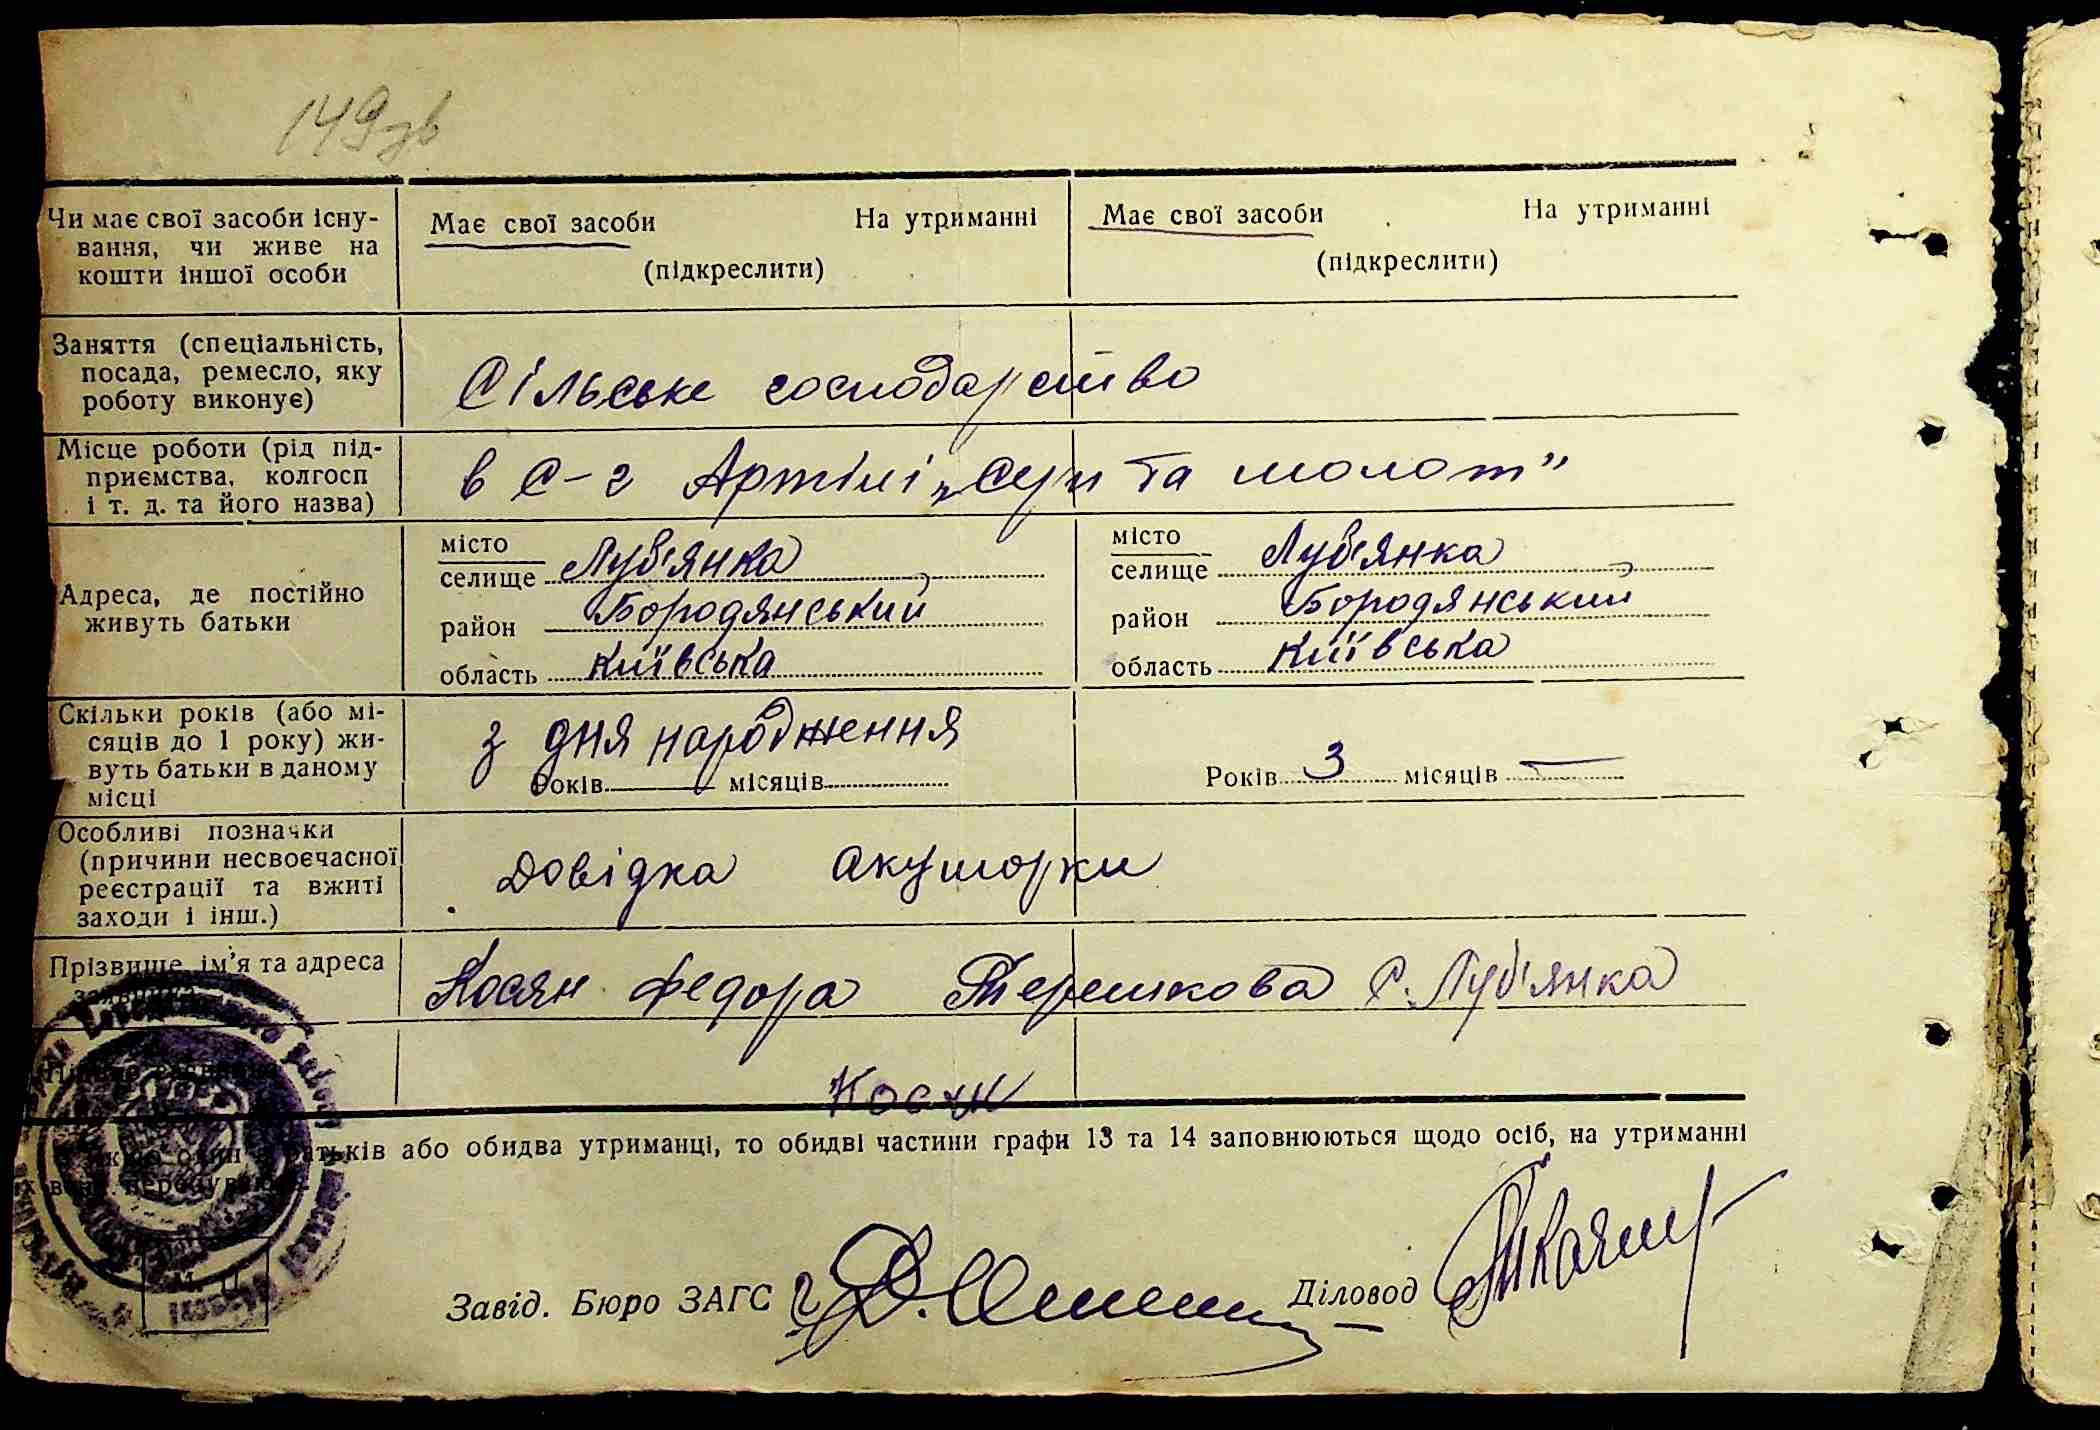 149зв
Чи має свої засоби існу- Має свої засоби На утриманні Має свої засоби На утриманні
вання, чи живе на
кошти іншої особи (підкреслити) (підкреслити)
Заняття (спеціальність,
посада, ремесло, яку Сільське господарство
роботу виконує)
Місце роботи (рід під-
приємства, колгосп в С-г Артілі „Серп та молот"
і т. д. та його назва)
місто місто
селище Луб'янка селище Луб'янка
Адреса, де постійно
живуть батьки район Бородянський район Бородянський
область Київська область Київська
Скільки років (або мі-
сяців до 1 року) жи- з дня народження
вуть батьки в даному Років місяців Років 3 місяців —
місці
Особливі позначки
(причини несвоєчасної Довідка акушорки
реєстрації та вжиті
заходи і інш.)
Прізвище, ім'я та адреса Косян Федора Терешкова с. Луб'янка
Косян
батьків або обидва утриманці, то обидві частини графи 13 та 14 заповнюються щодо осіб, на утриманні
М. П.
Завід. Бюро ЗАГС Діловод